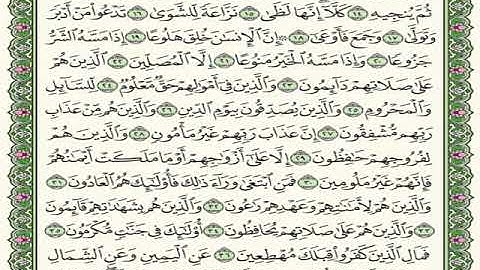 ثُمَّ يُنجِيهِ ١٤ كَلَّآ إِنَّهَا لَظَىٰ ١٥ نَزَّاعَةً لِّلشَّوَىٰ ١٦ تَدْعُوا۟ مَنْ أَدْبَرَ
وَتَوَلَّىٰ ١٧ وَجَمَعَ فَأَوْعَىٰٓ ١٨ إِنَّ ٱلْإِنسَٰنَ خُلِقَ هَلُوعًا ١٩ إِذَا مَسَّهُ ٱلشَّرُّ
جَزُوعًا ٢٠ وَإِذَا مَسَّهُ ٱلْخَيْرُ مَنُوعًا ٢١ إِلَّا ٱلْمُصَلِّينَ ٢٢ ٱلَّذِينَ هُمْ
عَلَىٰ صَلَاتِهِمْ دَآئِمُونَ ٢٣ وَٱلَّذِينَ فِىٓ أَمْوَٰلِهِمْ حَقٌّ مَّعْلُومٌ ٢٤ لِّلسَّآئِلِ
وَٱلْمَحْرُومِ ٢٥ وَٱلَّذِينَ يُصَدِّقُونَ بِيَوْمِ ٱلدِّينِ ٢٦ وَٱلَّذِينَ هُم مِّنْ عَذَابِ
رَبِّهِم مُّشْفِقُونَ ٢٧ إِنَّ عَذَابَ رَبِّهِمْ غَيْرُ مَأْمُونٍ ٢٨ وَٱلَّذِينَ هُمْ
لِفُرُوجِهِمْ حَٰفِظُونَ ٢٩ إِلَّا عَلَىٰٓ أَزْوَٰجِهِمْ أَوْ مَا مَلَكَتْ أَيْمَٰنُهُمْ
فَإِنَّهُمْ غَيْرُ مَلُومِينَ ٣٠ فَمَنِ ٱبْتَغَىٰ وَرَآءَ ذَٰلِكَ فَأُو۟لَٰٓئِكَ هُمُ ٱلْعَادُونَ ٣١
وَٱلَّذِينَ هُمْ لِأَمَٰنَٰتِهِمْ وَعَهْدِهِمْ رَٰعُونَ ٣٢ وَٱلَّذِينَ هُم بِشَهَٰدَٰتِهِمْ قَآئِمُونَ
٣٣ وَٱلَّذِينَ هُمْ عَلَىٰ صَلَاتِهِمْ يُحَافِظُونَ ٣٤ أُو۟لَٰٓئِكَ فِى جَنَّٰتٍ مُّكْرَمُونَ ٣٥
فَمَالِ ٱلَّذِينَ كَفَرُوا۟ قِبَلَكَ مُهْطِعِينَ ٣٦ عَنِ ٱلْيَمِينِ وَعَنِ ٱلشِّمَالِ